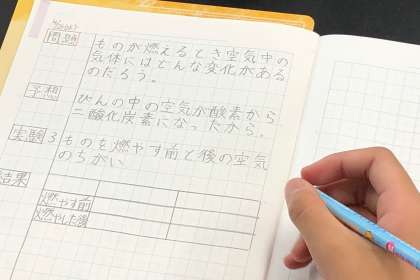 問題
ものが燃えるとき空気中の
気体にはどんな変化がある
のだろう。
予想
びんの中の空気が酸素から
二酸化炭素になったから。
実験3
ものを燃やす前と後の空気
のちがい
結果
燃やす前
燃やした後